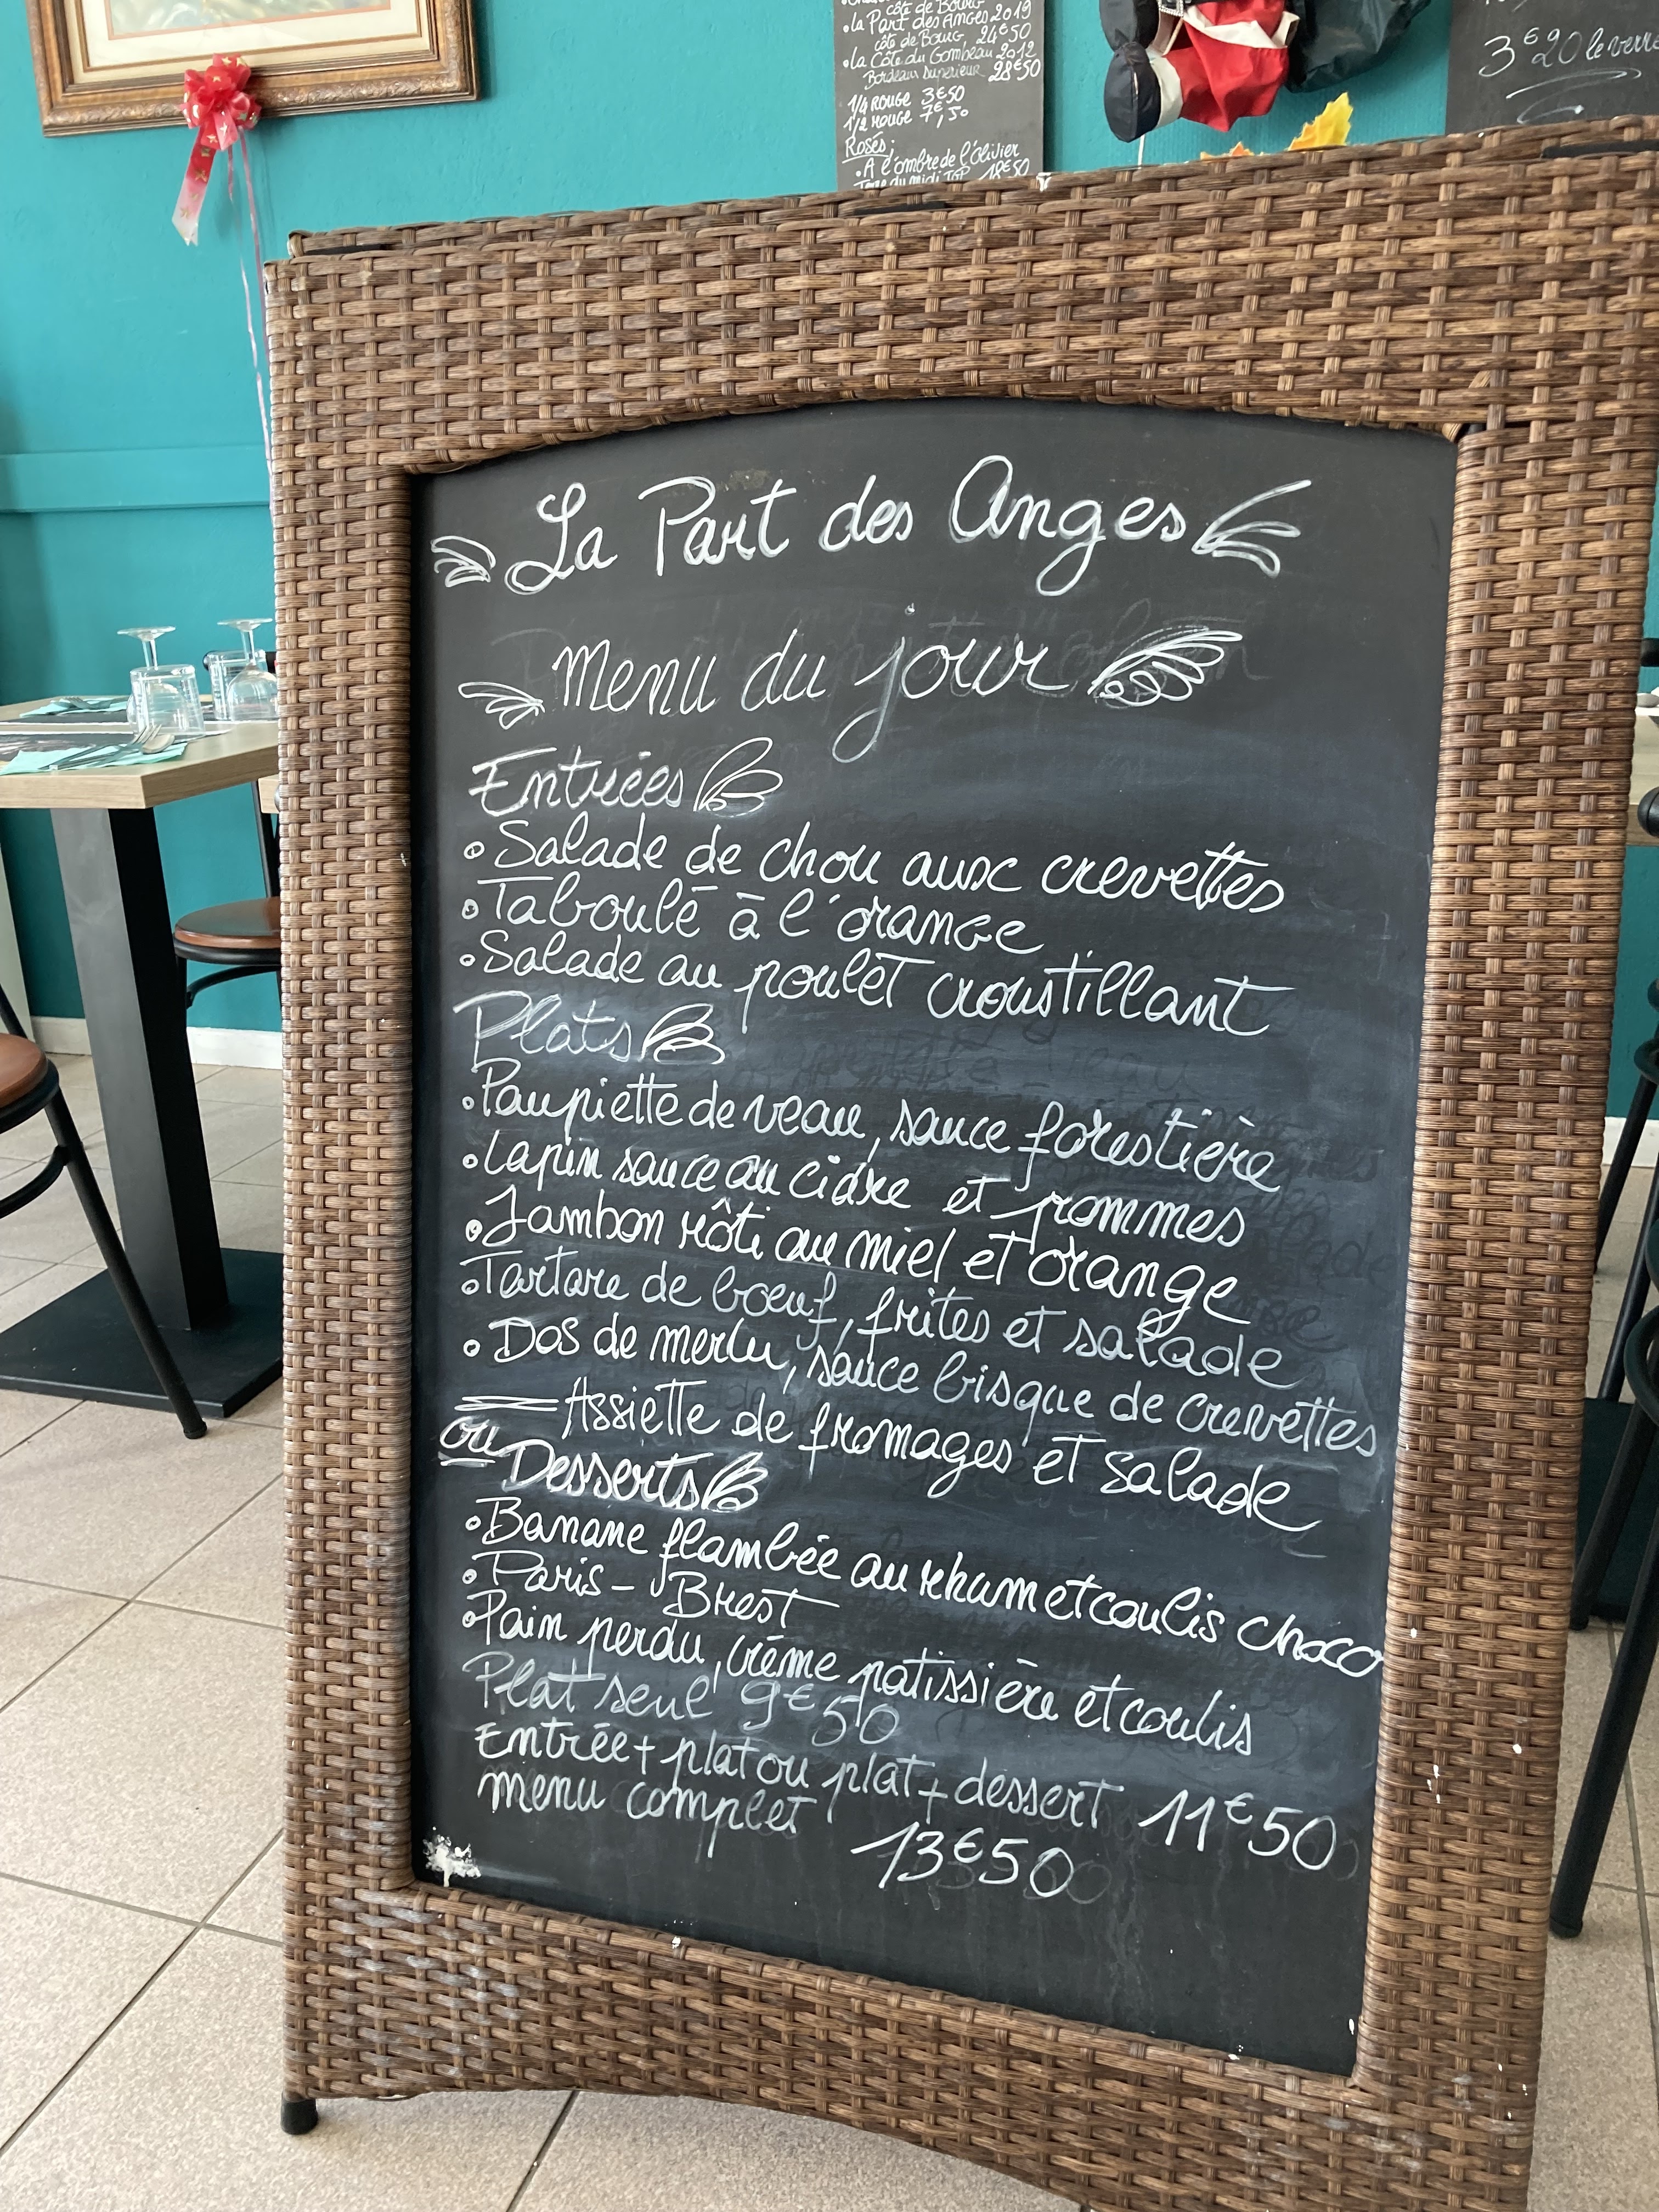 côte de Bourg
•la Part des Anges 2019
côte de Bourg, 24€50
•la Côte du Gombeau 2012
Bordeaux superieur 28€50
1/4 ROUGE 3€50
1/2 ROUGE 7€,50
Rosés;
•A l'ombre de l'Olivier
18€50
3€20 le verre
La Part des Anges
Menu du jour
Entrées
•Salade de chou aux crevettes
•Taboulé à l'orange
•Salade au poulet croustillant
Plats
•Paupiette de veau, sauce forestière
•Lapin sauce au cidre et pommes
•Jambon rôti au miel et orange
•Tartare de boeuf, frites et salade
•Dos de merlu, sauce bisque de crevettes
Assiette de fromages et salade
ou Desserts
•Banane flambée au rhum et coulis choco
•Paris-Brest
•Pain perdu, crème patissière et coulis
Plat seul 9€50
Entrée + plat ou plat + dessert 11€50
menu complet 13€50